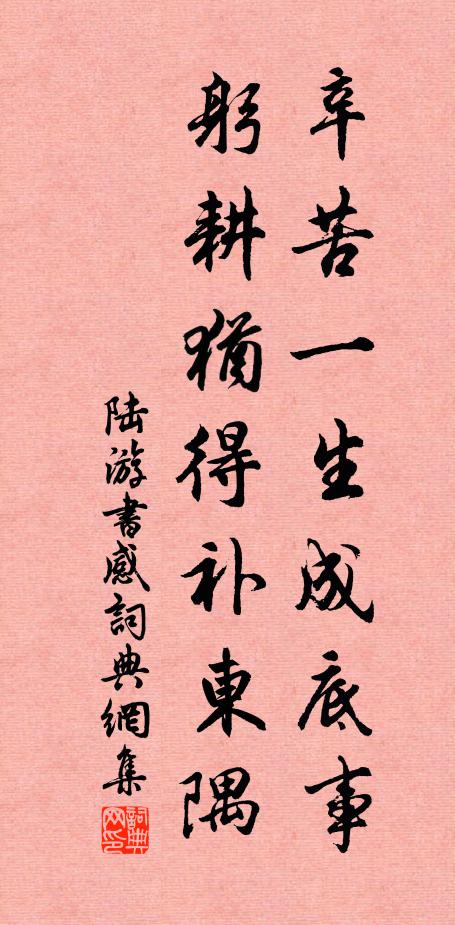 辛苦一生成底事
躬耕猶得补東隅
陆游書感詞典網集
詞典网印